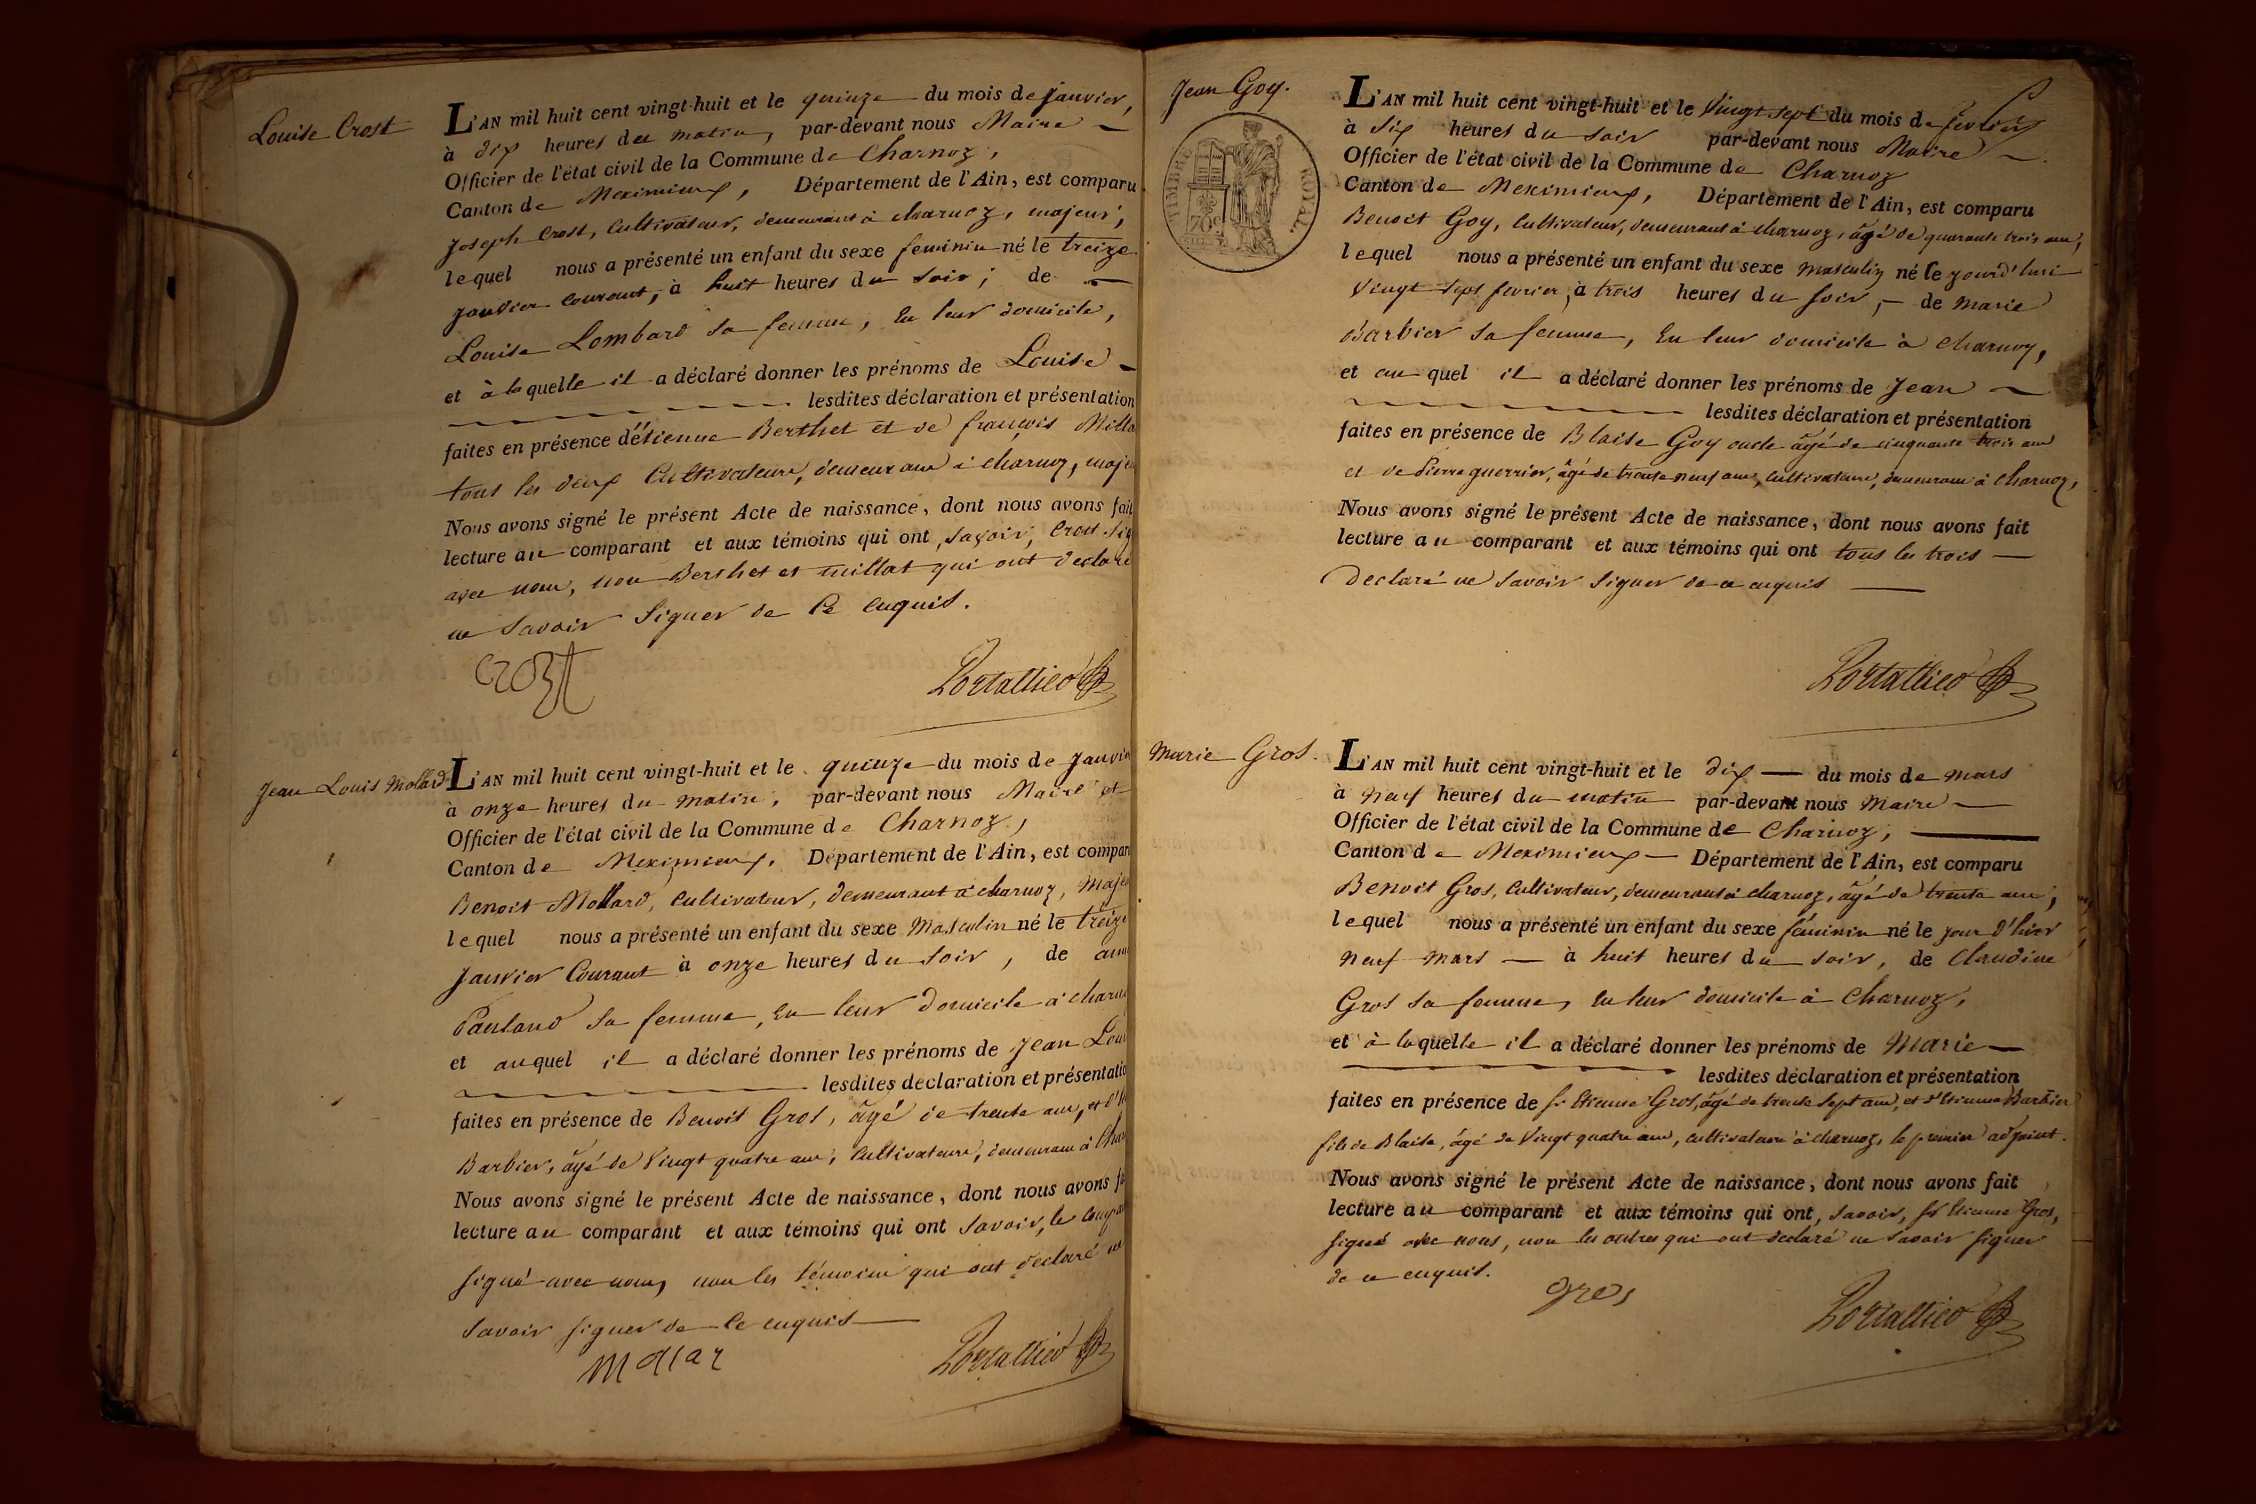 Louise Crost
L'AN mil huit cent vingt-huit et le quinze du mois de janvier,
à dix heures du matin, par-devant nous Maire
Officier de l'état civil de la Commune de Charnoz,
Canton de Meximieux, Département de l'Ain, est comparu
Joseph Crost, Cultivateur, demeurant à charnoz, majeur,
lequel nous a présenté un enfant du sexe feminin né le treize
janvier courant, à huit heures du soir; de
Louise Lombard sa femme, en leur domicile,
et à laquelle il a déclaré donner les prénoms de Louise
lesdites déclaration et présentation
faites en présence d'étienne Berthet et de françois Milla
tous les deux Cultivateurs, demeurans à charnoz, maje
Nous avons signé le présent Acte de naissance, dont nous avons fait
lecture au comparant et aux témoins qui ont, savoir, Crost sig
avec nous, non Berthet et millat qui ont declaré
ne savoir signer de ce enquis.
crozt
Portallied
Jean Louis Mollard
L'AN mil huit cent vingt-huit et le quinze du mois de janvie
à onze heures du matin, par-devant nous Maire et
Officier de l'état civil de la Commune de Charnoz,
Canton de Meximieux, Département de l'Ain, est compar
Benoit Mollard, Cultivateur, demeurant à charnoz, Maje
lequel nous a présenté un enfant du sexe Masculin né le treize
Janvier Courant à onze heures du soir, de
sa femme, en leur domicile à charno
et auquel il a déclaré donner les prénoms de Jean Loui
lesdites déclaration et présentatio
faites en présence de Benoit Gros, âgé de trente ans, et
Barbier, âgé de Vingt quatre ans, Cultivateurs, demeurans à Char
Nous avons signé le présent Acte de naissance, dont nous avons fa
lecture au comparant et aux témoins qui ont savoir, le compar
signé avec nous, non les témoins qui ont declaré ne
savoir signer de ce enquis
mollar
Portallied
Jean Goy.
TIMBRE ROYAL
70c
L'AN mil huit cent vingt-huit et le Vingt sept du mois de fevrier
à six heures du soir par-devant nous Maire
Officier de l'état civil de la Commune de Charnoz
Canton de Meximieux, Département de l'Ain, est comparu
Benoit Goy, Cultivateur, demeurant à charnoz, âgé de quarante trois ans,
lequel nous a présenté un enfant du sexe masculin né le jourd'hui
Vingt sept fevrier, à trois heures du soir, de Marie
Barbier sa femme, en leur domicile à charnoz,
et auquel il a déclaré donner les prénoms de Jean
lesdites déclaration et présentation
faites en présence de Blaise Goy oncle âgé de cinquante trois ans
et de Pierre guerrier, âgé de trente neuf ans, Cultivateurs, demeurans à Charnoz,
Nous avons signé le présent Acte de naissance, dont nous avons fait
lecture au comparant et aux témoins qui ont tous les trois
declaré ne savoir signer de ce enquis
Portallied
Marie Gros.
L'AN mil huit cent vingt-huit et le dix du mois de mars
à neuf heures du matin par-devant nous Maire
Officier de l'état civil de la Commune de Charnoz,
Canton de Meximieux Département de l'Ain, est comparu
Benoit Gros, Cultivateur, demeurant à charnoz, âgé de trente ans,
lequel nous a présenté un enfant du sexe féminin né le jour d'hier
neuf mars à huit heures du soir, de Claudine
Gros sa femme, en leur domicile à Charnoz,
et à laquelle il a déclaré donner les prénoms de Marie
lesdites déclaration et présentation
faites en présence de sr Etienne Gros, âgé de trente sept ans, et d'Etienne Barbier
fils de Blaise, âgé de Vingt quatre ans, cultivateurs à charnoz, le premier adjoint.
Nous avons signé le présent Acte de naissance, dont nous avons fait
lecture au comparant et aux témoins qui ont, savoir, sr Etienne Gros,
signé avec nous, non les autres qui ont declaré ne savoir signer
de ce enquis.
gros
Portallied